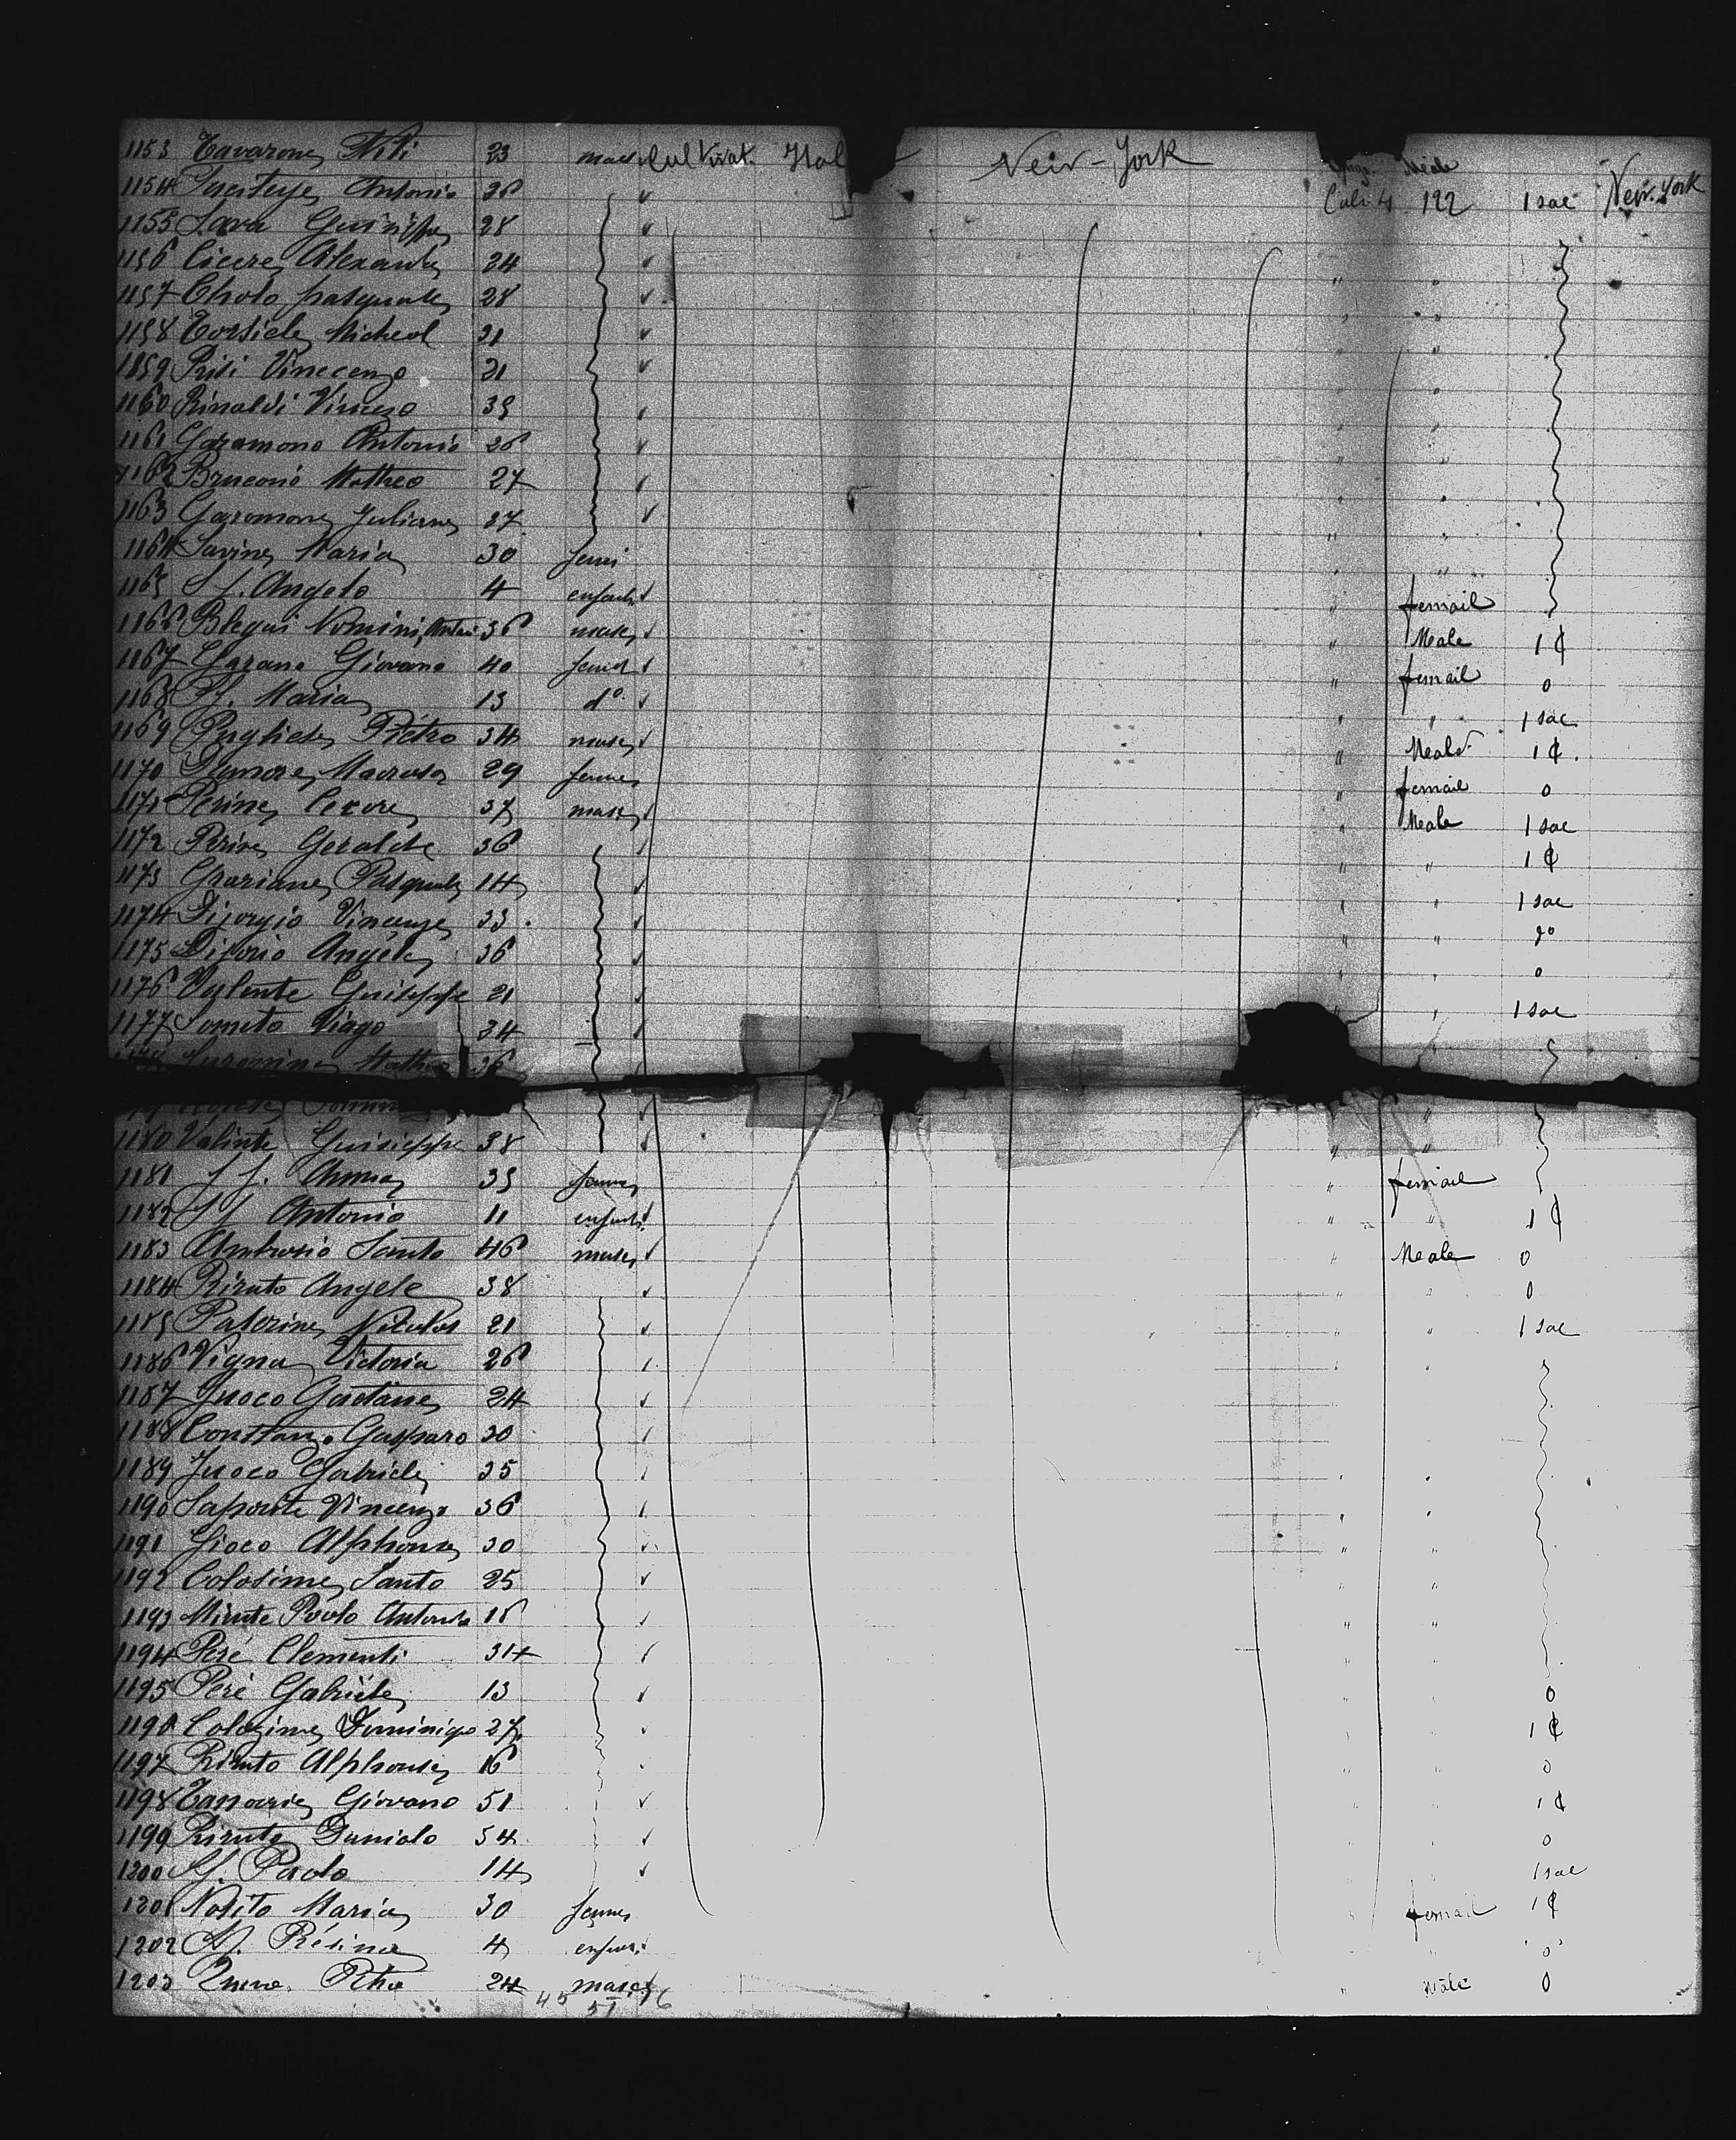 1153 Tavarone Niti 23 masc Cultivat. Ital New-York Male
1154 Antonio 36 " Cale 4 122 1 sac New-York
1155 Sava Guiseppe 28
1156 Cicere Alexandre 24 " "
1157 Cholo pasquale 28 " "
1158 Torsiele Micheol 21 " "
1159 Prisi Vinecenzo 21 " "
1160 Rinaldi Vincenzo 39 " "
1161 Garamono Antonio 26 " "
1162 Bruconi Matheo 27 " "
1163 Garomone Juliane 37 " "
1164 Savine Maria 30 femi " "
1165 S f. Angelo 4 enfants " femail
1166 Blegui Nomini Antoni 36 masc " Meale 1 ¢
1167 Garano Giovano 40 femel " femail 0
1168 S f. Maria 13 do " " 1 sac
1169 Puglies Piétro 34 masc " Meale 1 ¢.
1170 29 femme " femail 0
1171 Perine Cecore 37 masc " Meale 1 sac
1172 Perine Geralde 36 " " 1 ¢
1173 Graziane Pasquale 14 " " 1 sac
1174 Dijorgio Vincenze 33 " " do
1175 Diforio Angele 36 " " 0
1176 Valente Guiseppe 21 " " 1 sac
1177 Someto Viago 34 "
Matheo 36
1180 Valinte Guiseppe 38 " "
1181 S f. Anna 35 femme " femail
1182 S f Antonio 11 enfants " " 1 ¢
1183 Ambrosio Santo 46 masc " Meale 0
1184 Riruto Angele 38 " " 0
1185 Paterine Nicolas 21 " " 1 sac
1186 Vigna Victoria 26 " "
1187 Juoco Gaetane 24 " "
1188 Constanzo Gasparo 30 " "
1189 Juoco Gabriele 35 " "
1190 Saporite Vincenzo 36 " "
1191 Gioco Alphonse 30 " "
1192 Colosime Santo 25 " "
1193 Minte Paolo Antonio 18 " "
1194 Peré Clementi 34 " "
1195 Peré Gabriele 13 " " 0
1196 Colozime Dominigo 27 " " 1 ¢
1197 Riruto Alphonse 16 " " 0
1198 Giovano 51 " " 1 ¢
1199 Riruto Daniolo 54 " " 0
1200 S f. Paolo 14 " " 1 sac
1201 Nosito Maria 30 femme " femail 1 ¢
1202 S f. Résina 4 enfans " " 0
1203 24 masc " Male 0
45 51